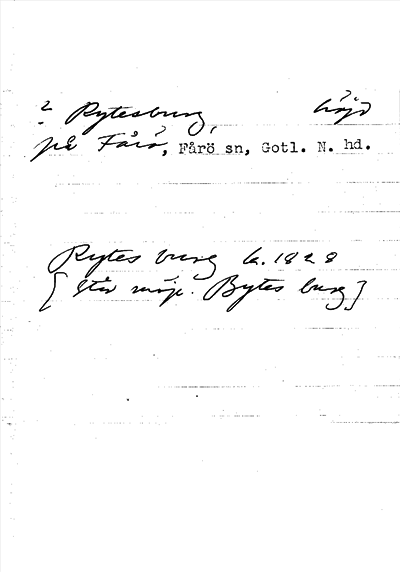 ? Rytesburg, höjd
på Fårö, Fårö sn, Gotl. N. hd.
Rytes burg k. 1828
[står möjl. Bytes burg]